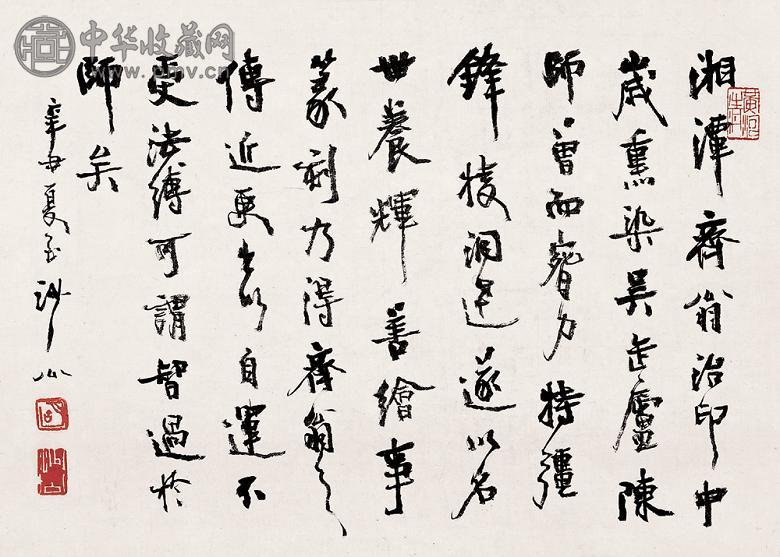 湘潭齊翁治印中
歲熏染吳缶廬陳
師曾而臂力特彊
鋒棱洞達遂以名
世養輝善繪事
篆刻乃得齊翁之
傳近更出以自運不
受法縛可謂智過於
師矣
辛丑夏至沙公
中华收藏网
www.pmv.cn